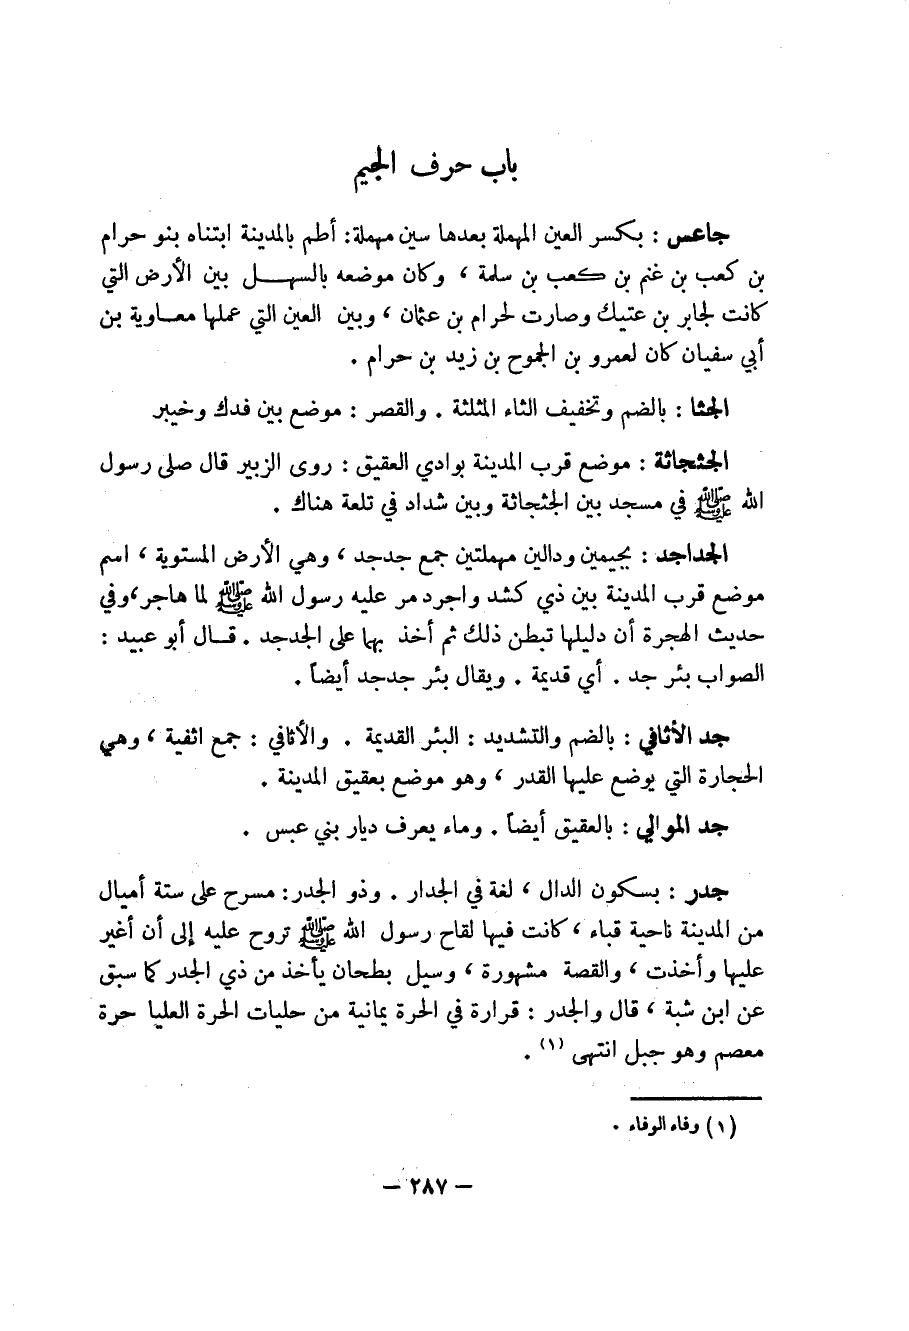 باب حرف الجيم
جاعس : بكسر العين المهملة بعدها سين مهملة: أطم بالمدينة ابتناه بنو حرام
بن كعب بن غنم بن كعب بن سلمة ، وكان موضعه بالسهل بين الأرض التي
كانت لجابر بن عتيك وصارت لحرام بن عثمان ، وبين العين التي عملها معاوية بن
أبي سفيان كان لعمرو بن الجموح بن زيد بن حرام .
الجثا : بالضم وتخفيف الثاء المثلثة . والقصر : موضع بين فدك وخيبر
الجثجاثة : موضع قرب المدينة بوادي العقيق : روى الزبير قال صلى رسول
الله ﷺ في مسجد بين الجثجاثة وبين شداد في تلعة هناك .
الجداجد : بجيمين ودالين مهملتين جمع جدجد ، وهي الأرض المستوية ، اسم
موضع قرب المدينة بين ذي كشد واجرد مر عليه رسول الله ﷺ لما هاجر،وفي
حديث الهجرة أن دليلها تبطن ذلك ثم أخذ بها على الجدجد . قال أبو عبيد :
الصواب بئر جد . أي قديمة . ويقال بئر جدجد أيضاً .
جد الأثافي : بالضم والتشديد : البئر القديمة . والأثافي : جمع اثفية ، وهي
الحجارة التي يوضع عليها القدر ، وهو موضع بعقيق المدينة .
جد الموالي : بالعقيق أيضاً . وماء يعرف ديار بني عبس .
جدر : بسكون الدال ، لغة في الجدار . وذو الجدر: مسرح على ستة أميال
من المدينة ناحية قباء ، كانت فيها لقاح رسول الله ﷺ تروح عليه إلى أن أغير
عليها وأخذت ، والقصة مشهورة ، وسيل بطحان يأخذ من ذي الجدر كما سبق
عن ابن شبة ، قال والجدر : قرارة في الحرة يمانية من حليات الحرة العليا حرة
معصم وهو جبل انتهى (١) .
(١) وفاء الوفاء .
— ٢٨٧ —